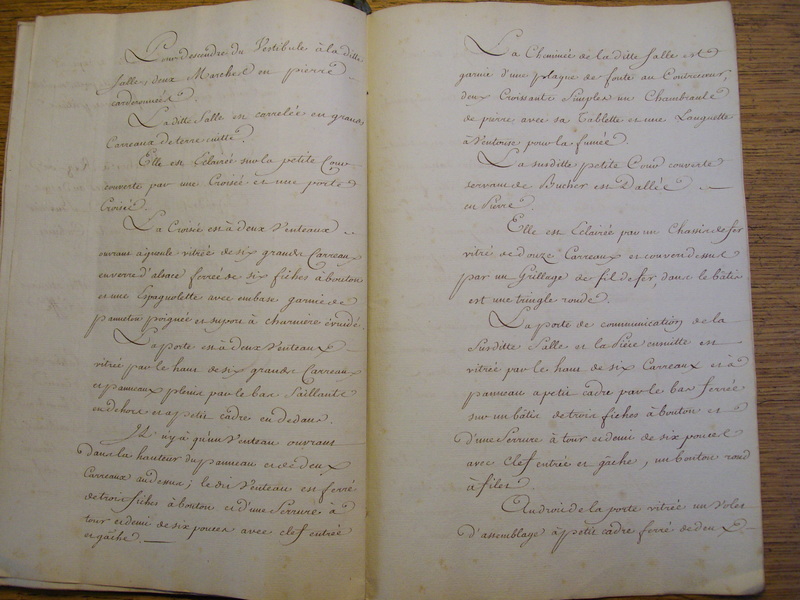 Pour descendre du Vestibule à la ditte
Salle, deux Marches en pierre
carderonnées.
La ditte Salle est carrelée en grands
Carreaux de terre cuitte.
Elle est Eclairée sur la petite Cour
couverte par une Croisée et une porte
Croisée.
La Croisée est à deux Venteaux
ouvrant à gueule vitrée de six grands Carreaux
en verre d'alsace ferrée de six fiches à bouton
et une Espagnolette avec embase garnie de
pannetons poignée et suport à charnière évuidé.
La porte est à deux Venteaux
vitrée par le haut de six grands Carreaux
et panneaux pleins par le bas Saillants
en dehors et a petit cadre en dedans.
Il n'y a qu'un Venteau ouvrant
dans la hauteur du panneau et de deux
Carreaux au dessus; le dit Venteau est ferré
de trois fiches à bouton et d'une Serrure à
tour et demi de six pouces avec clef entrée
et gâche.
La Cheminée de la ditte Salle est
garnie d'une plaque de fonte au Contrecoeur,
deux Croissants Simples un Chambranle
de pierre avec sa Tablette et une Languette
à Ventouse pour la fumée.
La susditte petite Cour couverte
servant de Bucher est Dallée
en Pierre.
Elle est Eclairée par un Chassis de fer
vitré de douze Carreaux et couvert dessus
par un Grillage de fil de fer, dans le bâtis
est une tringle ronde.
La porte de communication de la
Susditte Salle et la Pièce ensuitte est
vitrée par le haut de six Carreaux et à
panneau a petit cadre par le bas ferrée
sur un bâtis de trois fiches à bouton et
d'une Serrure à tour et demi de six pouces
avec clef entrée et gâche, un bouton rond
à filets.
Au droit de la porte vitrée un Volet
d'assemblage à petit cadre ferré de deux